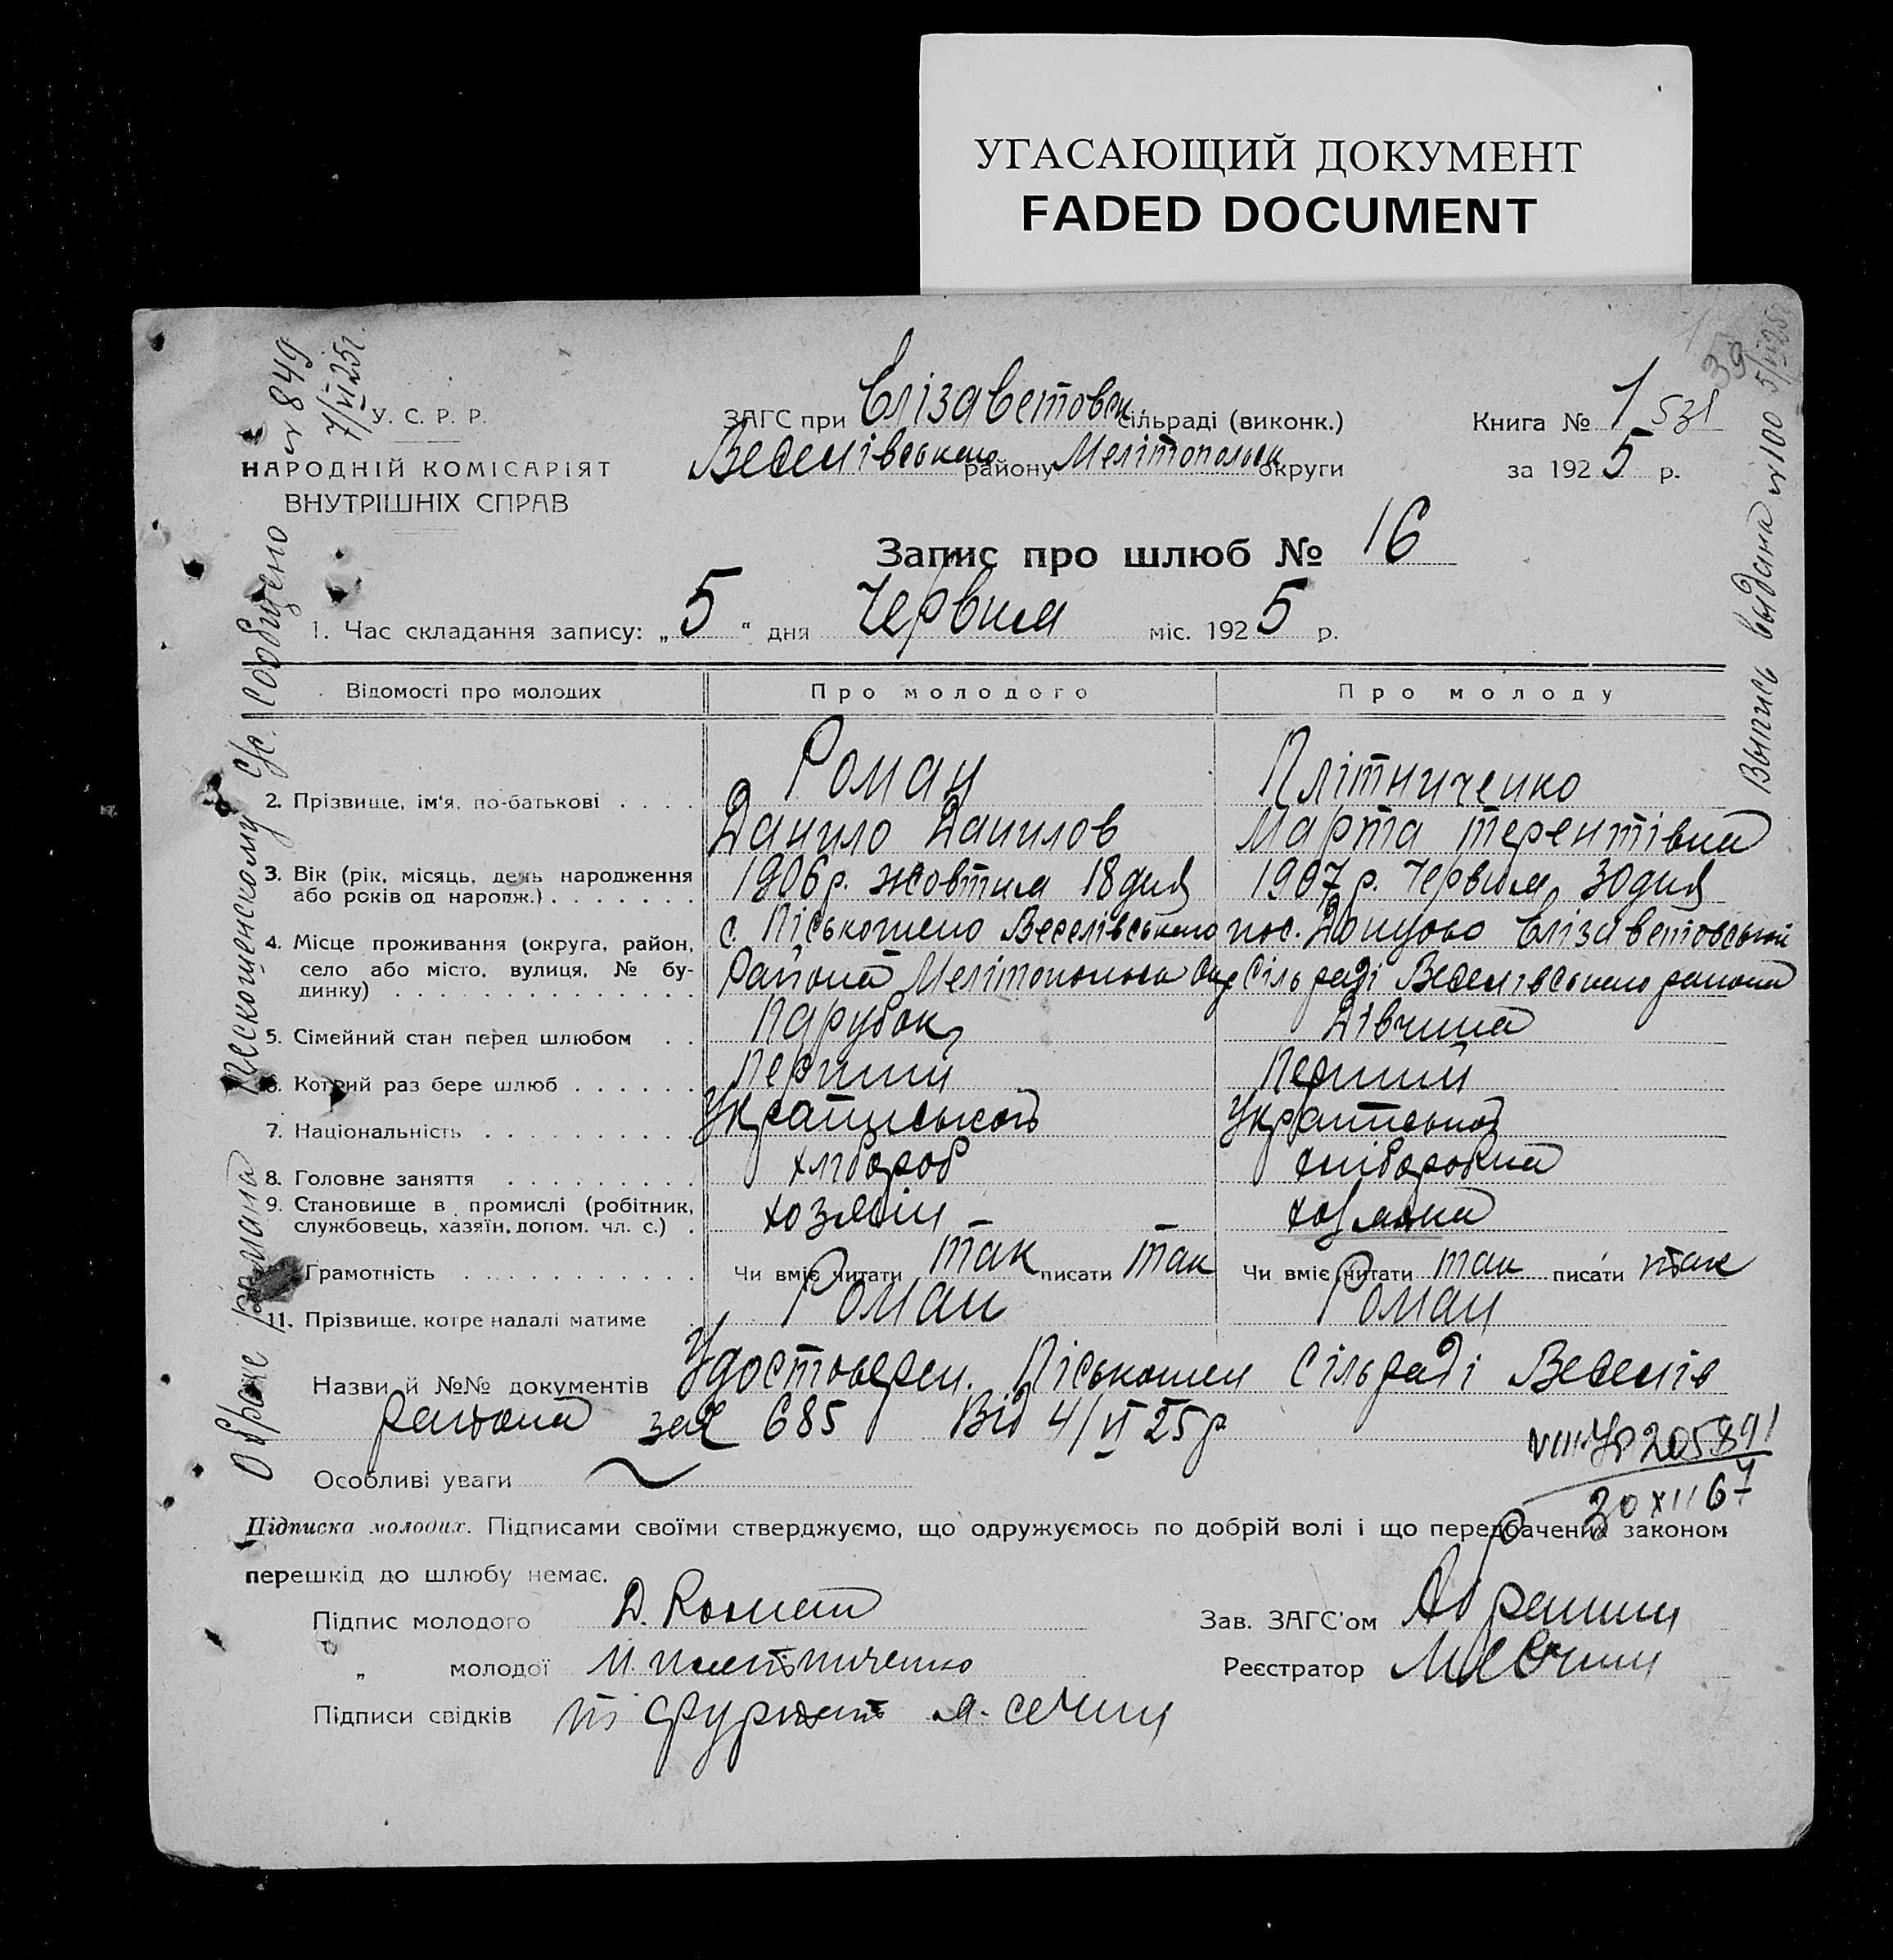 УГАСАЮЩИЙ ДОКУМЕНТ
FADED DOCUMENT
У. С. Р. Р.
НАРОДНІЙ КОМІСАРІЯТ
ВНУТРІШНІХ СПРАВ
ЗАГС при Єлізаветовск. сільраді (виконк.)
Веселівського району Мелітопольск округи
Книга № 1
за 1925 р.
531
39
5/VI 25
Запис про шлюб № 16
1. Час складання запису: „5“ дня Червня міс. 1925 р.
Відомості про молодих Про молодого Про молоду
2. Прізвище, ім'я, по-батькові . . . . Роман Плітниченко
Данило Данилов Марта терентівна
3. Вік (рік, місяць, день народження або років од народж.) . . . . . . . 1906 р. жовтня 18 дня 1907 р. Червня 30 дня
4. Місце проживання (округа, район, село або місто, вулиця, № будинку) . . . . . . . . . . . . . .
с. Піськошено Веселівського пос. Донцово Єлізаветовській
Района Мелітопольск Окр Сільраді Веселівського района
5. Сімейний стан перед шлюбом . . Парубок Дівчина
6. Котрий раз бере шлюб . . . . . . Перший Перший
7. Національність . . . . . . . . . . Українського Української
8. Головне заняття . . . . . . . . . хлібороб хліборобка
9. Становище в промислі (робітник, службовець, хазяїн, допом. чл. с.) . хозяїн
Грамотність . . . . . . . . . . . . Чи вміє читати так писати так Чи вміє читати так писати так
11. Прізвище, котре надалі матиме Роман Роман
Назви й №№ документів Удостоверен. Піськошен Сільраді Веселів
района за № 685 Від 4/VI 25 р
Особливі уваги
VIII-УР 205891
30 XII 67
Підписка молодих. Підписами своїми стверджуємо, що одружуємось по добрій волі і що передбачених законом
перешкід до шлюбу немає.
Підпис молодого Д. Роман
„ молодої М. плетниченко
Підписи свідків
Зав. ЗАГС'ом
Реєстратор
О браке Романа Пескошенскому С/с. сообщено № 849
7/VI 25 г.
Выпись выдана № 100